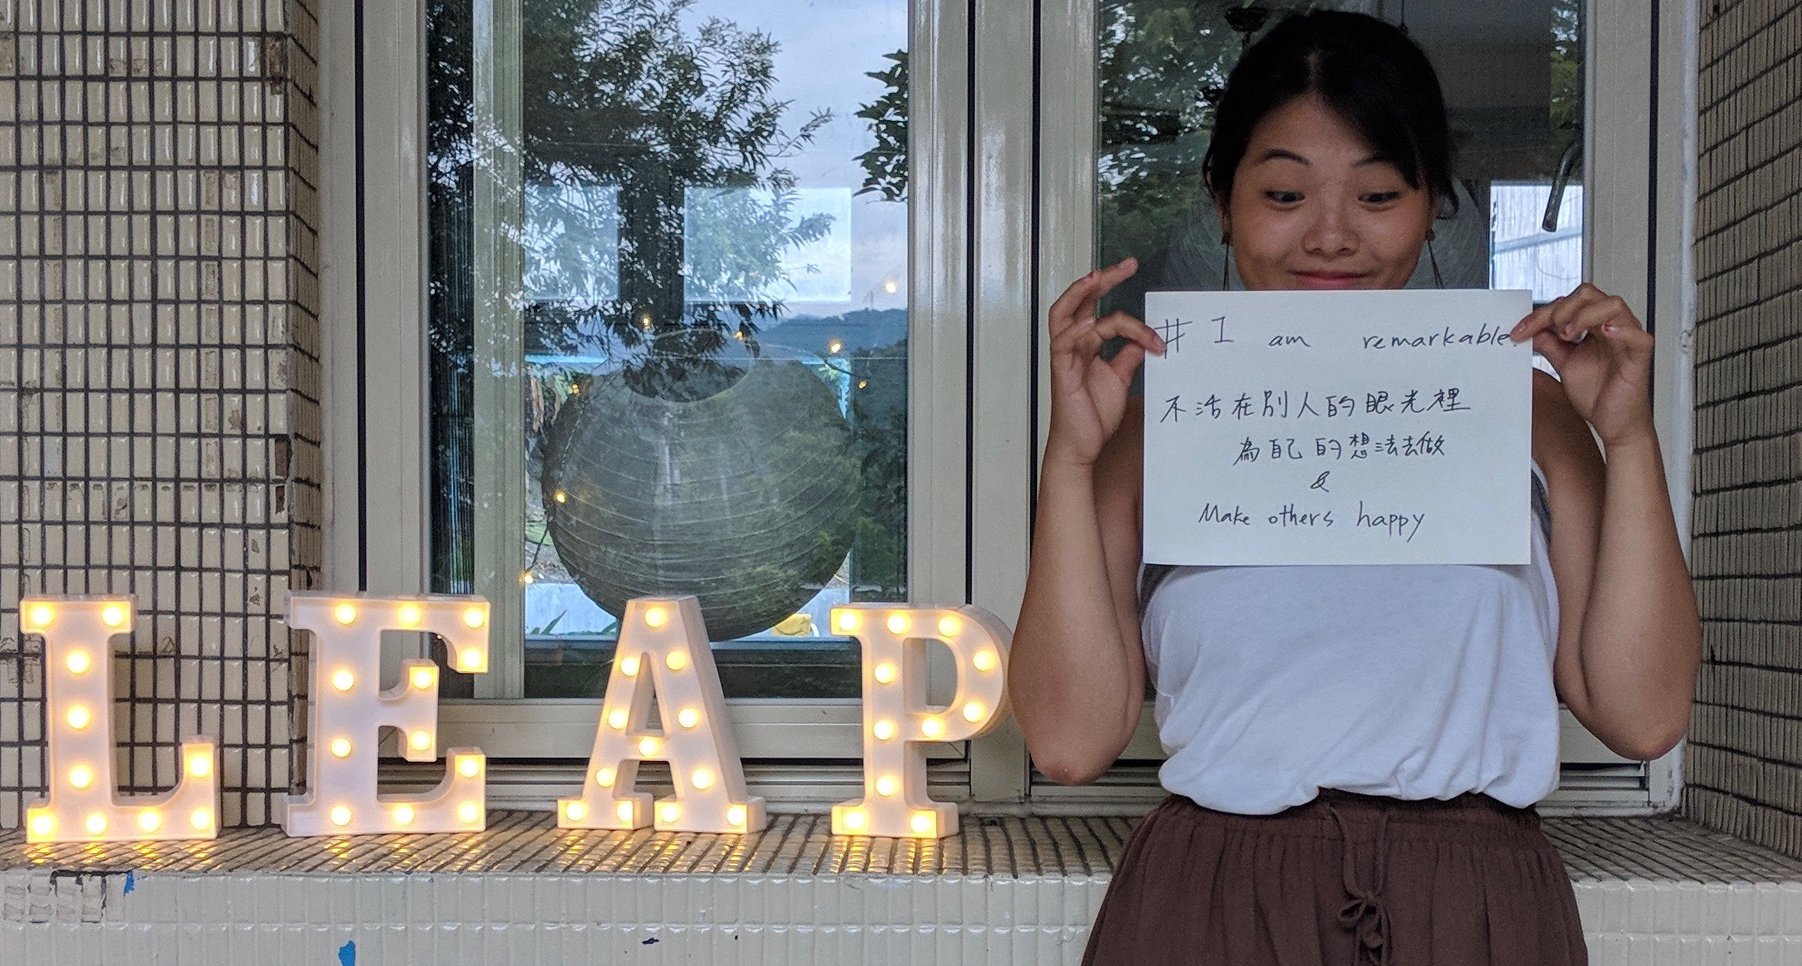 LEAP
# I am remarkable
不活在別人的眼光裡
為自己的想法去做
&
Make others happy